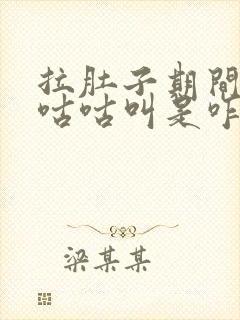 拉肚子期間
咕咕叫是咋
梁某某